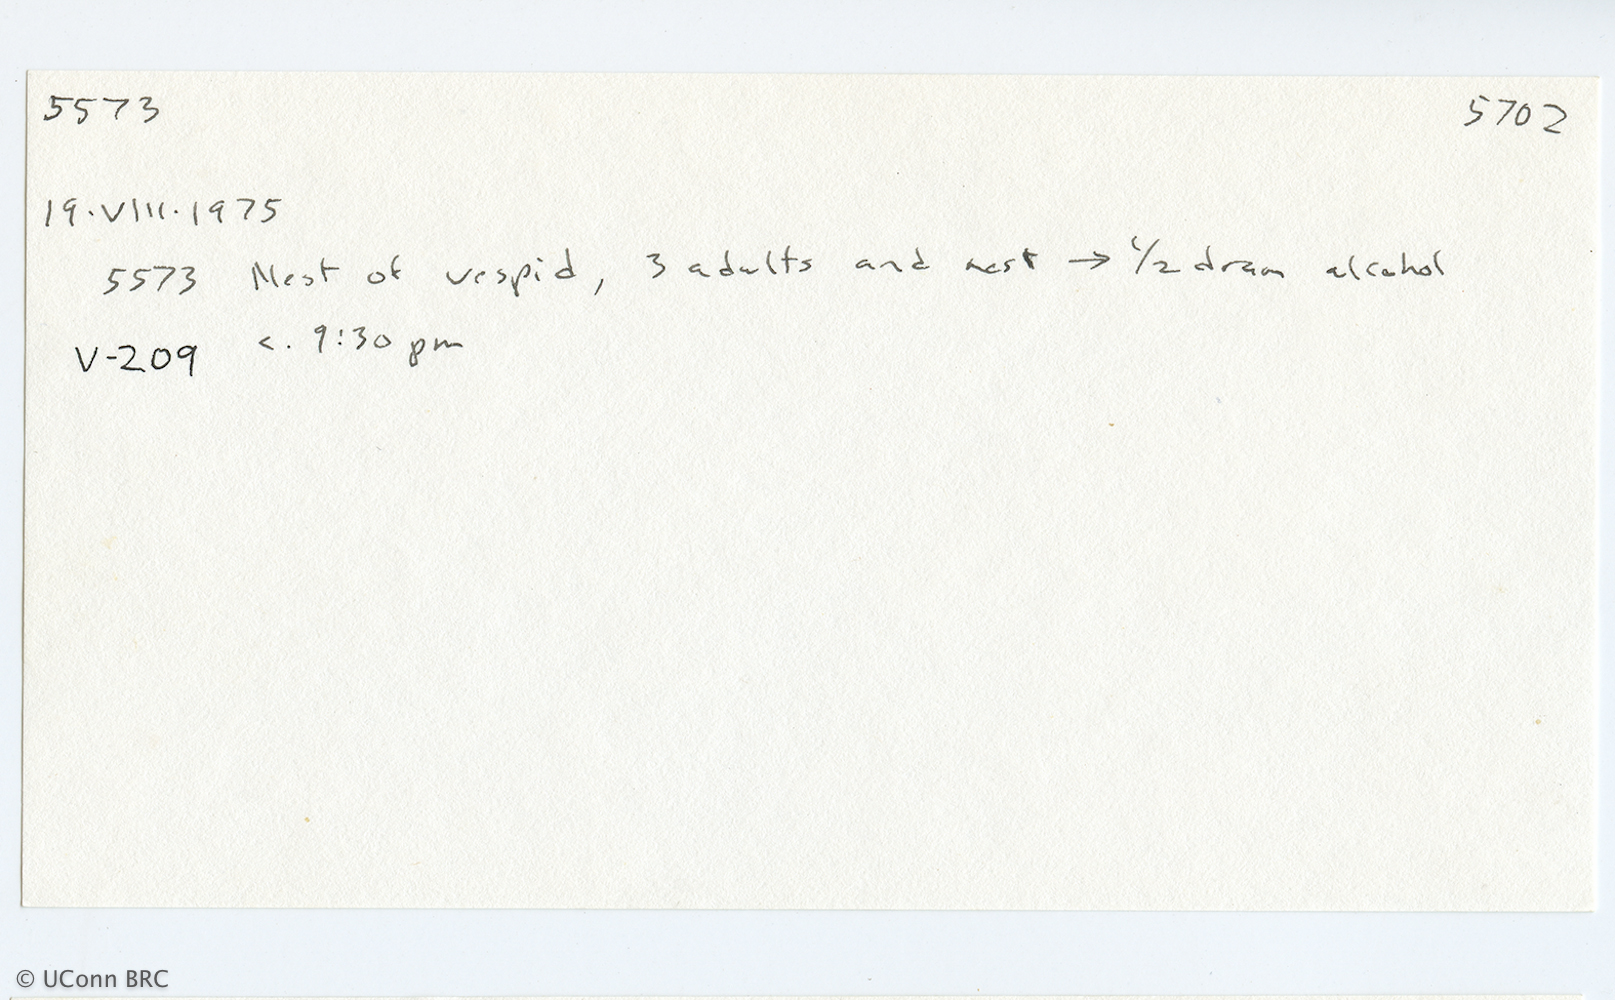 5573 5702
19.VIII.1975
5573 Nest of vespid, 3 adults and nest → 1/2 dram alcohol
V-209 c. 9:30 pm
© UConn BRC